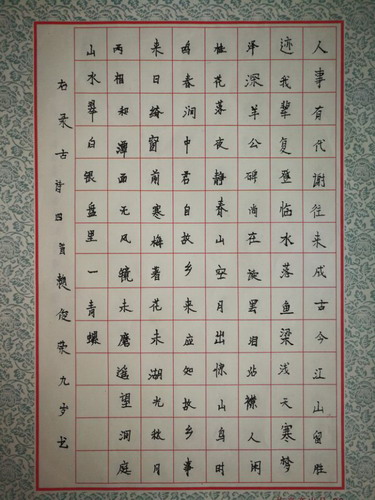 人事有代謝往来成古今江山留胜
迹我辈复登临水落鱼梁浅天寒梦
泽深羊公碑尚在读罢泪沾襟人闲
桂花落夜静春山空月出惊山鸟时
鸣春涧中君自故乡来应知故乡事
来日绮窗前寒梅著花未湖光秋月
两相和潭面无风镜未磨遥望洞庭
山水翠白银盘里一青螺
右录古诗四首九岁书